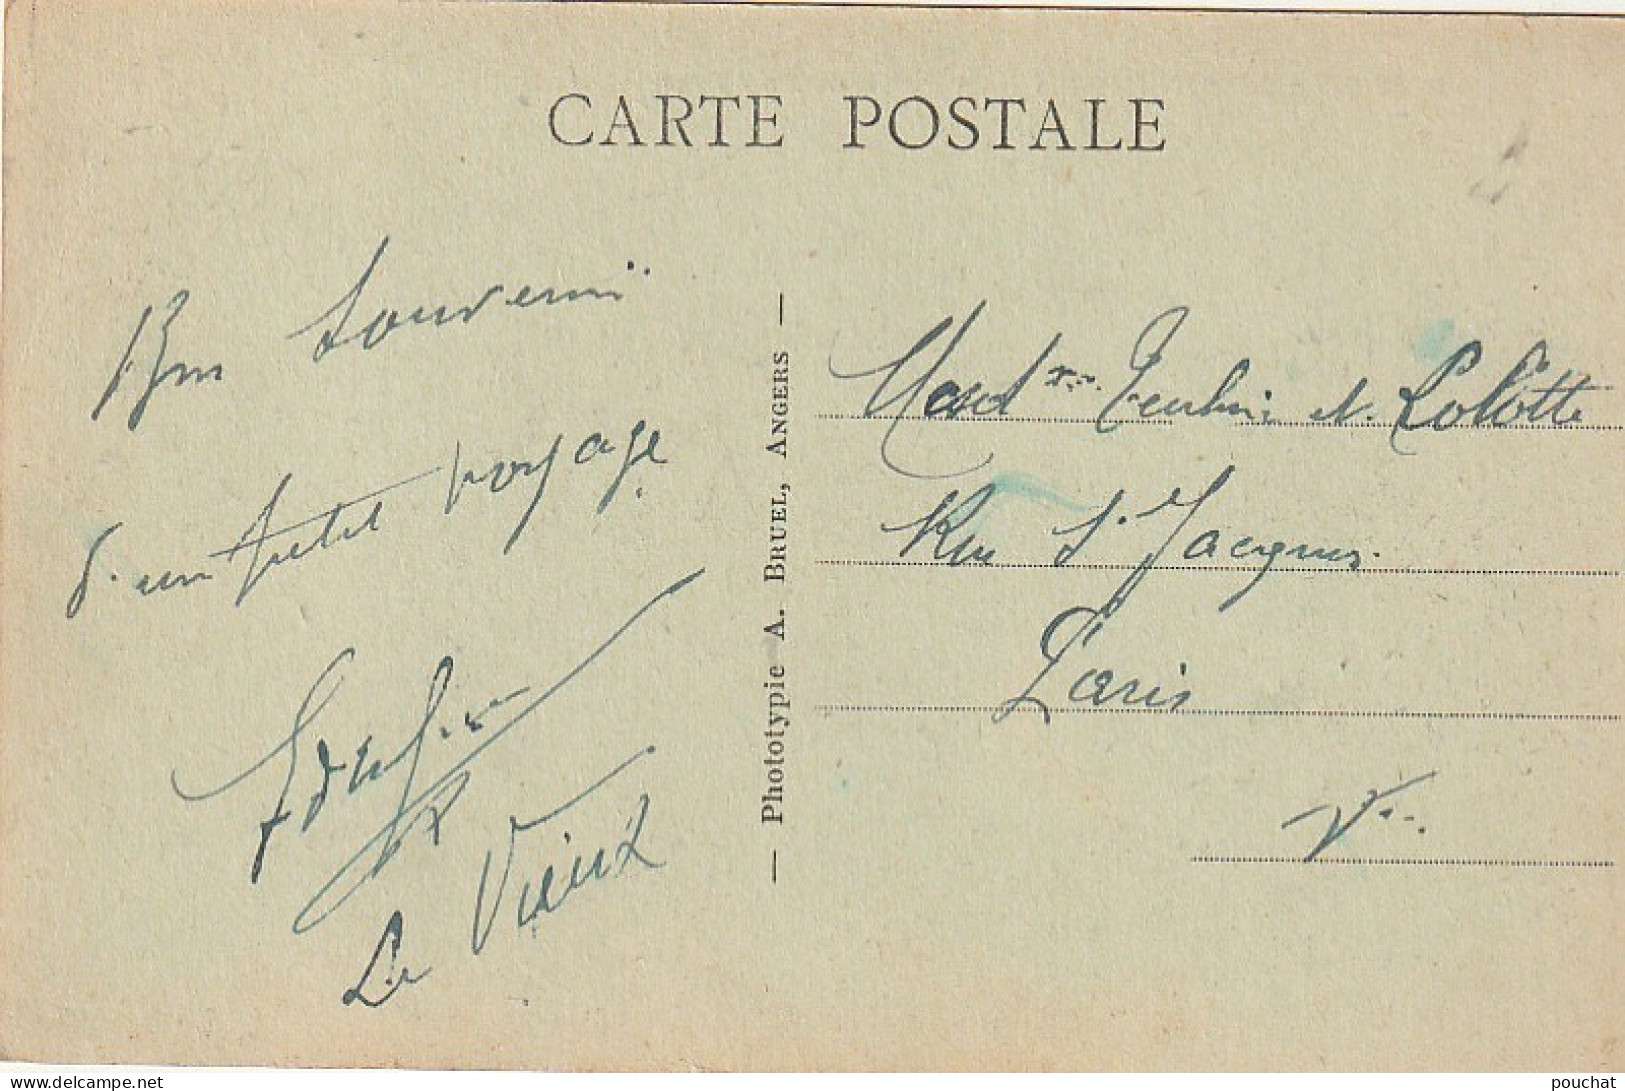 CARTE POSTALE
Bon Souvenir
d'un petit voyage
Le Vieux
— Phototypie A. BRUEL, ANGERS —
et Lolotte
Rue St Jacques
Paris
Ve
delcampe.net
pouchat